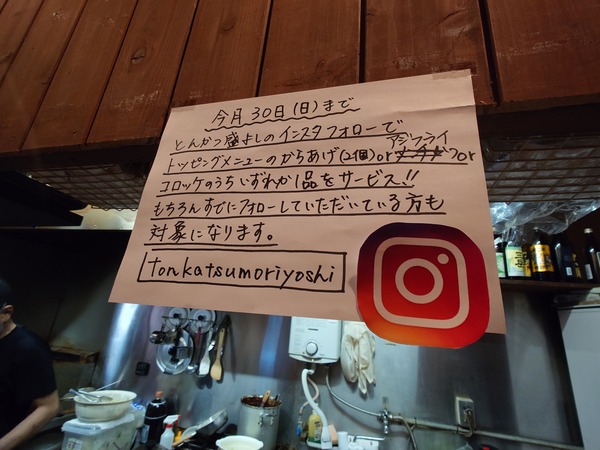 今月30日(日)まで
とんかつ盛よしのインスタフォローで
アジフライ
トッピングメニューのからあげ(2個)or or
コロッケのうちいずれか1品をサービス!!
もちろんすでにフォローしていただいている方も
対象になります。
tonkatsumoriyoshi